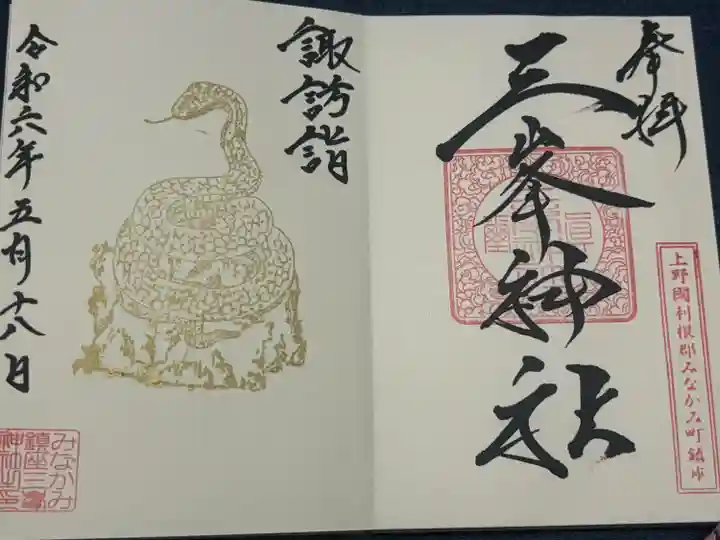 奉拝
三峯神社
上野國利根郡みなかみ町鎮座
諏訪詣
令和六年五月十八日
みなかみ
鎮座三峯